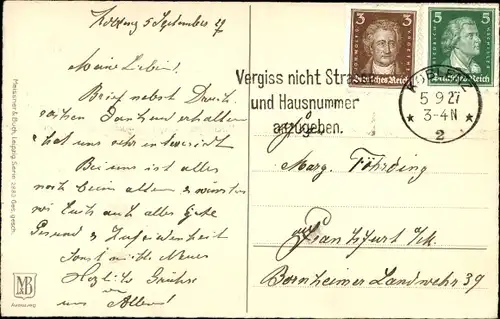 Koblenz 5 September 27
Meine Lieben!
Brief nebst Druck
sachen dankend erhalten
hat uns sehr interessirt
Bei uns ist alles
noch beim alten &
wir Euch auch alles Gute
Gesund & Zufriedenheit
sonst nichts Neues
Herzliche Grüsse
von
uns Allen!
Meissner & Buch, Leipzig Serie 2832 Ges. gesch.
M&B
Germany
3 3
Deutsches Reich
5 5
Deutsches Reich
Vergiss nicht Straße
und Hausnummer
anzugeben.
KOBLENZ
5 9 27
3-4N
* 2 *
Marg. Föhrding
Frankfurt a/M.
Bornheimer Landwehr 39